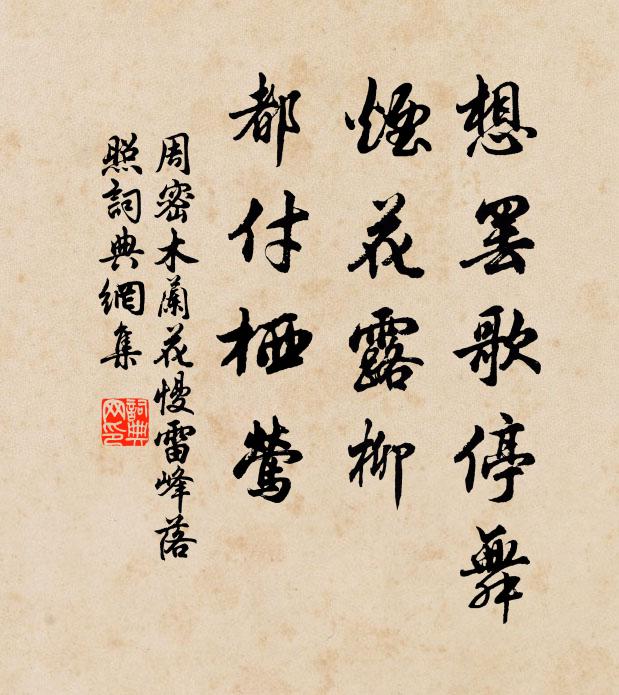 想罢歌停舞
烟花露柳
都付栖莺
周密木蘭花慢雷峰落
照詞典網集
詞典网印